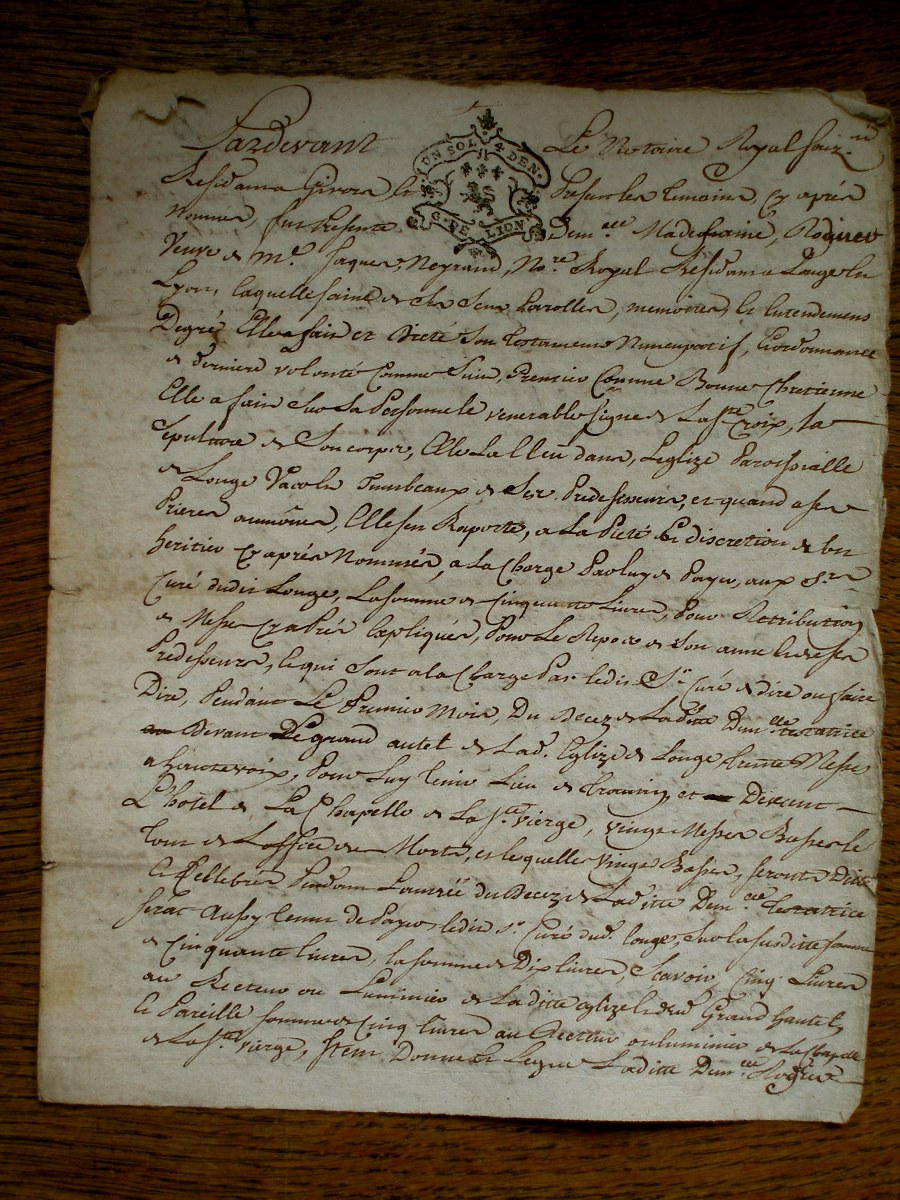 Pardevant
UN SOL 4 DEN.
G. DE LION
Le Notaire Royal souz.né
Residant a Givors
Presents les temoins, cy aprés
Nommés, fut Presente
Dem.elle Madelaine, Rogieu
Veuve de M.e Jaques, Neyrand, No.re Royal Residant a Longe en
Lyon, laquelle saine de ses sens Parolles, memoires, et Entendement
Degré Elle a fait et Dicté Son testament Nuncupatif, et ordonnance
de derniere volonté Comme Suit, Premier Comme Bonne Chretienne
Elle a fait Sur Sa Personne le venerable signe de La s.te Croix, la
Sepulture de Son corps, Elle La Elleu dans, L'eglize Paroissialle
de Longe Tumbeaux de Ses Predessesseurs, et quand a ses
Prieres aumônes, Elle s'en Raporte, a La Pieté et discretion de son
heritier cy aprés Nommés, a La Charge Par luy de Payer, aux Sr
Curé dudit Longe, La somme de Cinquante Livres, Pour Retribution
de Messes cy aprés Expliquées, Pour Le Repos de Son ame et de ses
Predessesseurs, qui Sont a la Charge Par ledit Sr Curé de dire ou faire
Dire, Pendant Le Premier Mois, Du Decez de Laditte Dem.elle testatrice
Devant Le grand autel de Lad. Eglize de Longe trente Messes
a haute voix, Pour Luy tenir Lieu de et Devant
L'hotel de La Chapelle de La s.te vierge, vingt Messes Basses le
tout de L'office des Morts, et lesquelles vingt Basses, seronts Ditte
et Cellebrés Pendant L'année du Decez de Laditte Dem.elle testatrice
serat Aussy tenu de Payer ledit Sr Curé dud. longe, sur la susditte somme
de Cinquante Livres, la somme de Dix livres, Scavoir Cinq Livres
au Recteur ou Luminier de Laditte eglize et dud. Grand hautel,
et Pareille somme de Cinq livres au Recteur ou luminier de La Chapelle
de La s.te vierge, Item Donne et Legue Laditte Dem.elle Rogieu